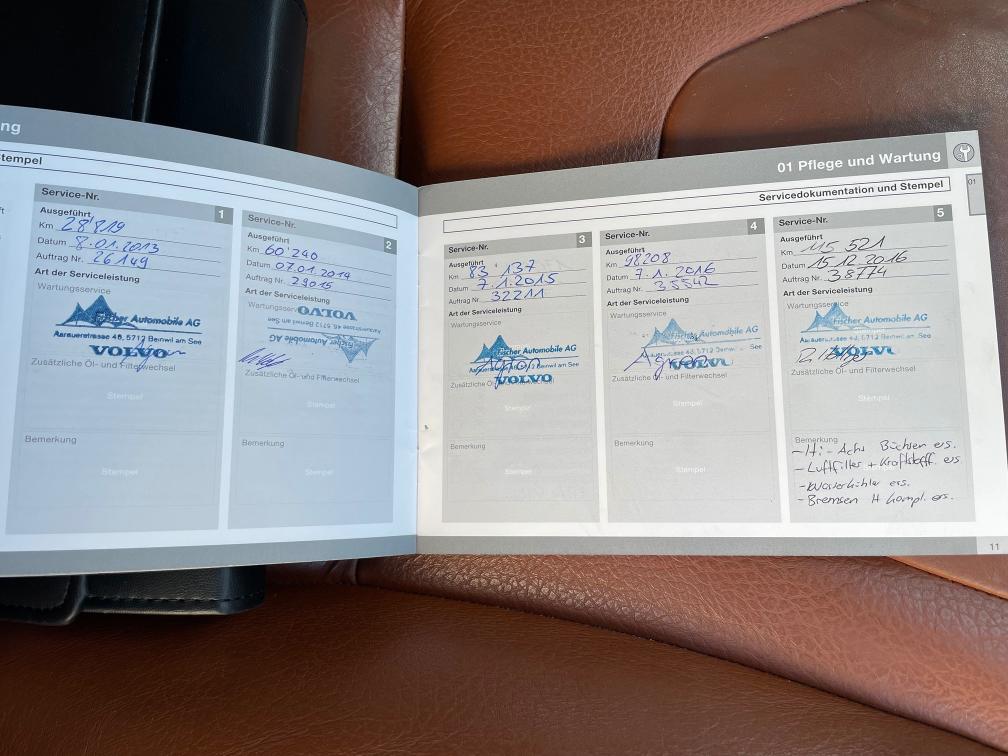 ng
Stempel
Service-Nr. 1
Ausgeführt
Km 28'819
Datum 8.01.2013
Auftrag Nr. 26149
Art der Serviceleistung
Wartungsservice
Fischer Automobile AG
Aarauerstrasse 48, 5712 Beinwil am See
VOLVO
Zusätzliche Öl- und Filterwechsel
Stempel
Bemerkung
Stempel
Service-Nr. 2
Ausgeführt
Km 60'290
Datum 07.01.2014
Auftrag Nr. 29015
Art der Serviceleistung
Wartungsservice
VOLVO
Aarauerstrasse 48, 5712 Beinwil am See
Fischer Automobile AG
Zusätzliche Öl- und Filterwechsel
Stempel
Bemerkung
Stempel
01 Pflege und Wartung
01
Servicedokumentation und Stempel
Service-Nr. 3
Ausgeführt
Km 83 137
Datum 7.1.2015
Auftrag Nr. 32211
Art der Serviceleistung
Wartungsservice
Fischer Automobile AG
Aarauerstrasse 48, 5712 Beinwil am See
VOLVO
Zusätzliche Öl- und Filterwechsel
Stempel
Bemerkung
Stempel
Service-Nr. 4
Ausgeführt
Km 98208
Datum 7.1.2016
Auftrag Nr. 35542
Art der Serviceleistung
Wartungsservice
Fischer Automobile AG
Aarauerstrasse 48, 5712 Beinwil am See
VOLVO
Zusätzliche Öl- und Filterwechsel
Stempel
Bemerkung
Stempel
Service-Nr. 5
Ausgeführt
Km 115 521
Datum 15.12.2016
Auftrag Nr. 38774
Art der Serviceleistung
Wartungsservice
Fischer Automobile AG
Aarauerstrasse 48, 5712 Beinwil am See
VOLVO
Zusätzliche Öl- und Filterwechsel
Stempel
Bemerkung
- Hi- Achs Büchsen ers.
- Luftfilter + Kraftstoff. ers.
- Wasserkühler ers.
- Bremsen H kompl. ers.
11